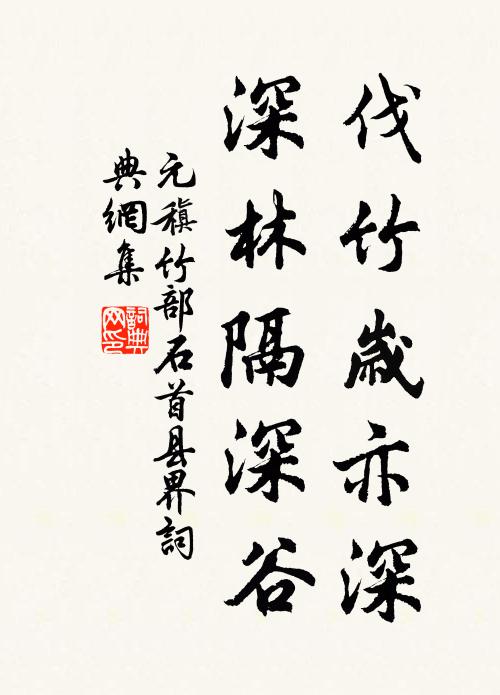 伐竹歲亦深
深林隔深谷
元稹竹部石首县界詞
典網集
詞典网印